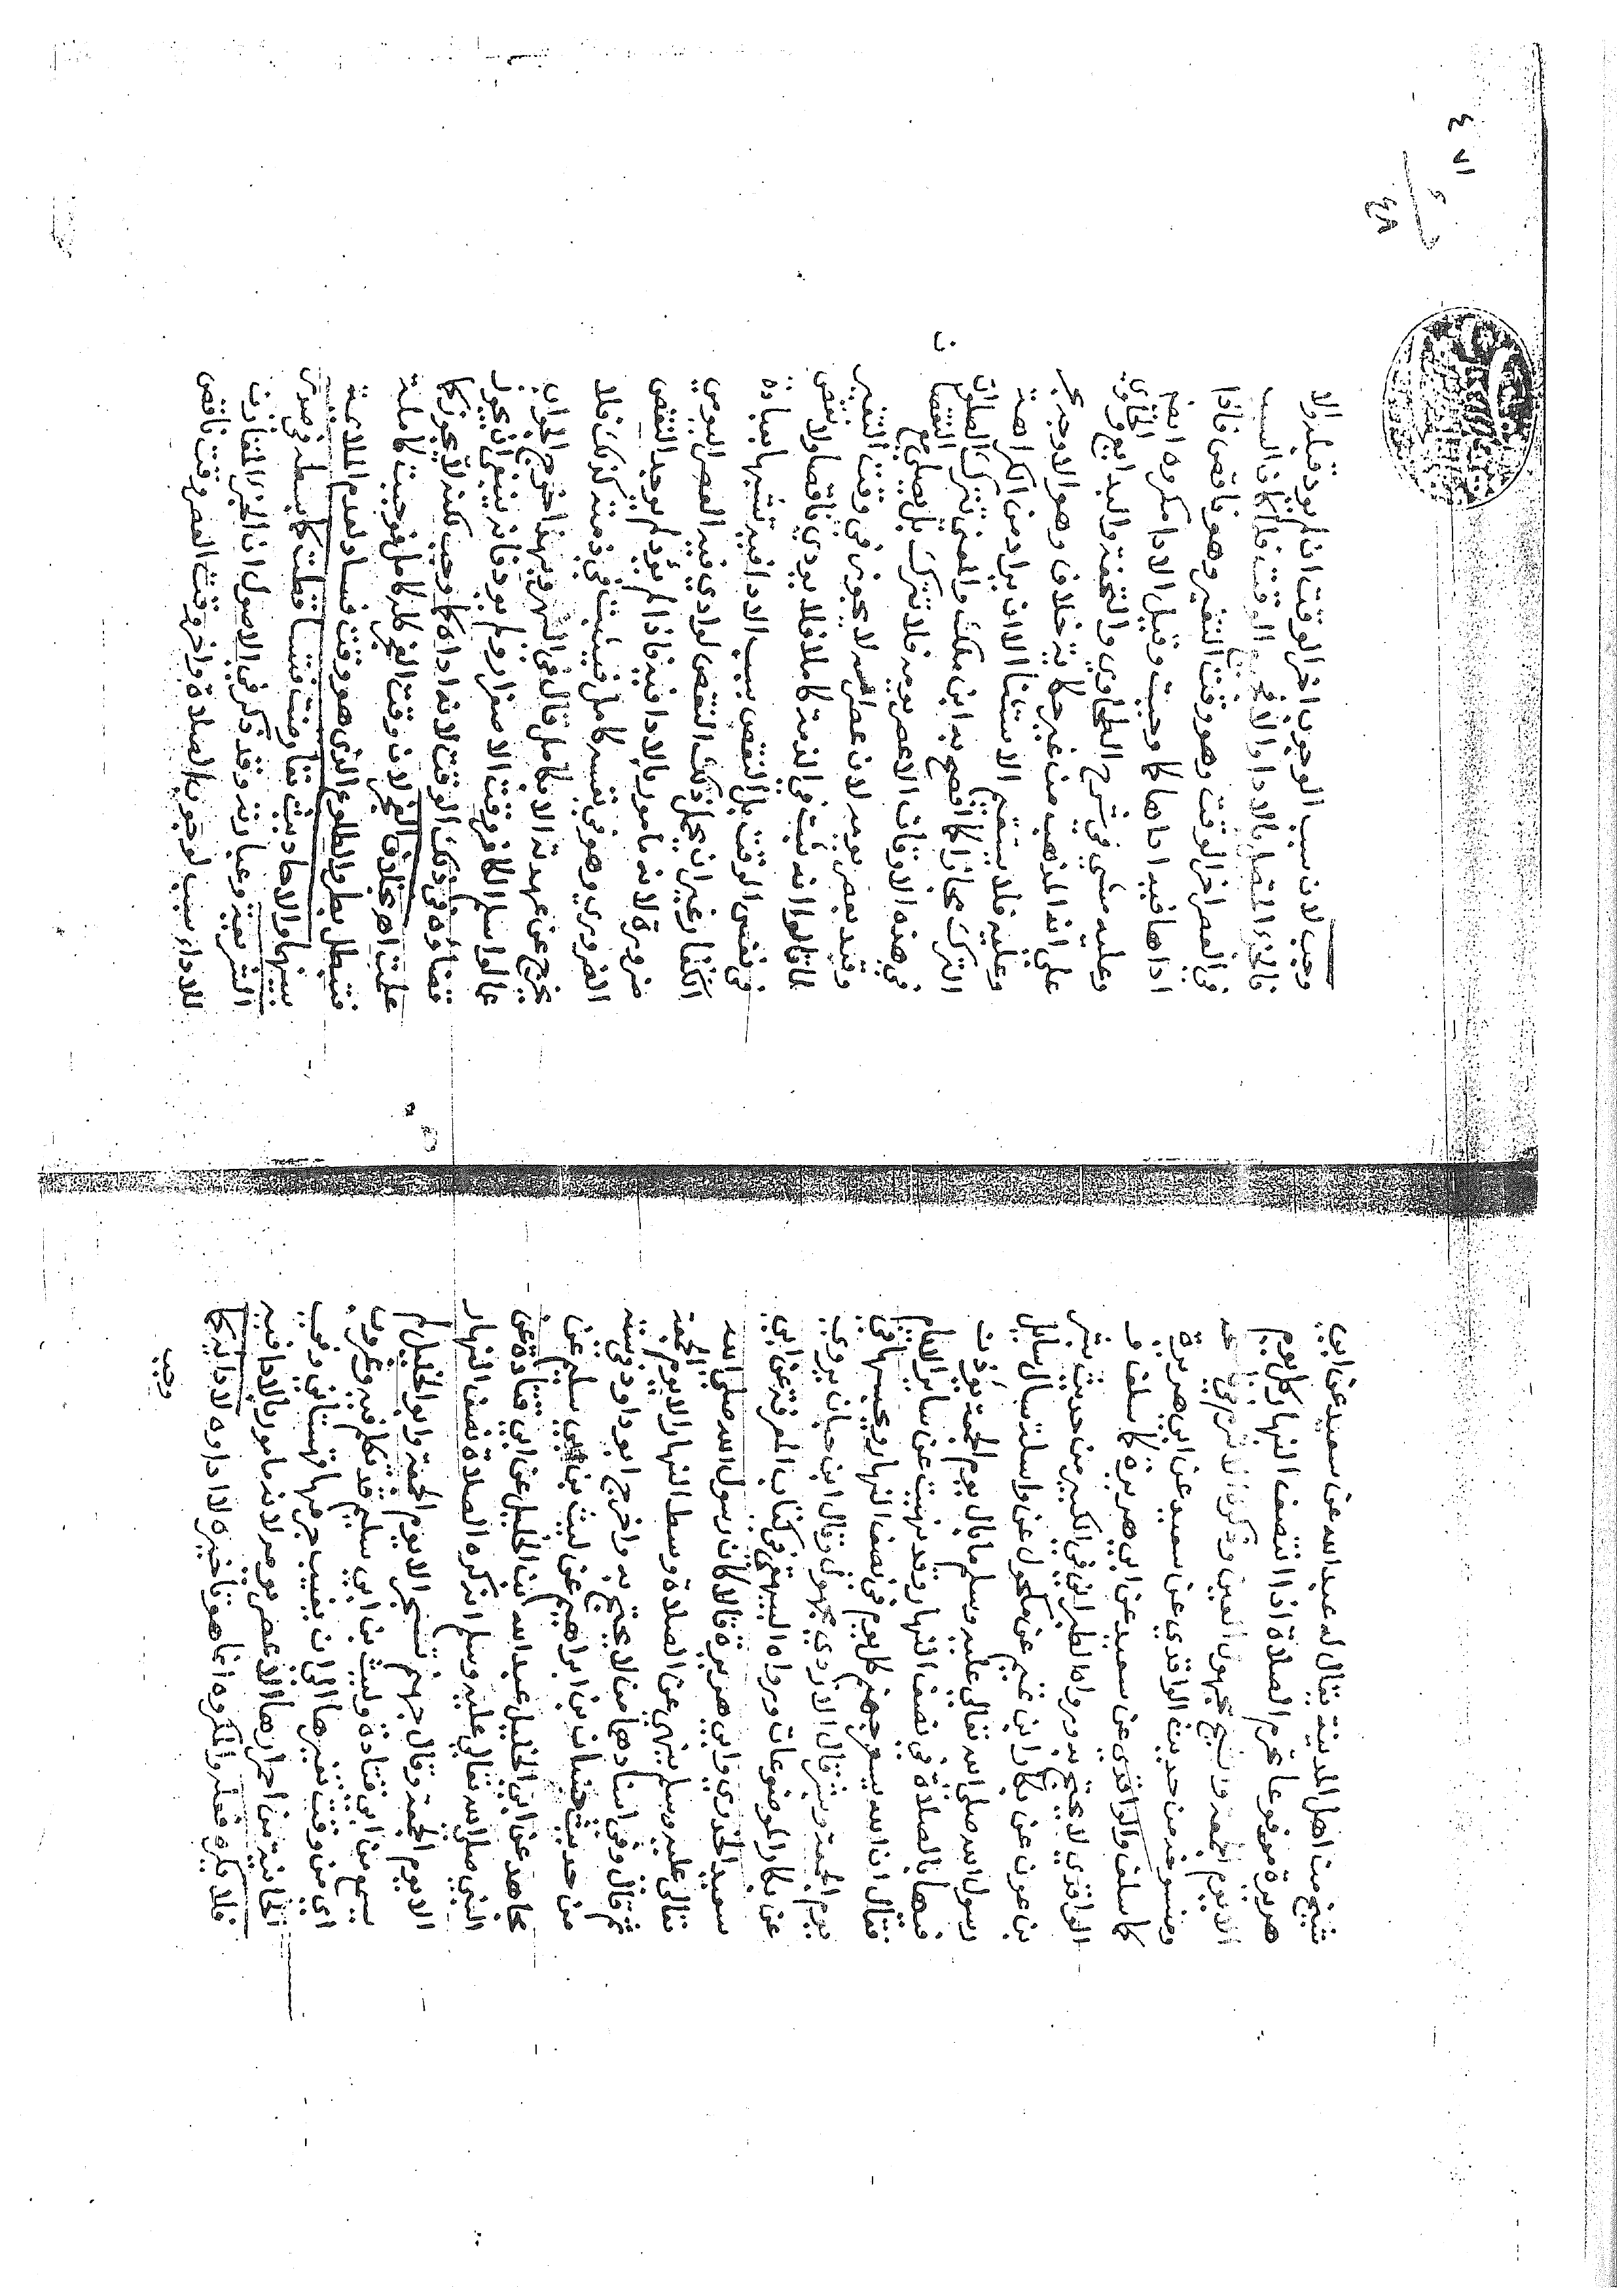 شيخ من اهل المدينة يقال له عبد الله عن سعيد عن ابي
هريرة مرفوعا تحرم الصلاة اذا انتصف النهار كل يوم
الا يوم الجمعة وشيخ مجهول العين وذكره الاثرم
ومنسوخه من حديث الواقدي عن سعيد عن ابي هريرة
كما سلف والواقدي عن سعيد عن ابي هريرة كما سلف و
الواقدي لا يحتج به ورواه الطبراني في الكبير من حديث بشر
بن عون عن بكار ابن تميم عن مكحول عن واسلة سال سايل
رسول الله صلى الله تعالى عليه وسلم ما بال يوم الجمعة يؤذن
فيها بالصلاة في نصف النهار وقد نهيت عن ساير الايام
فقال ان الله يسعر جهنم كل يوم في نصف النهار ويخبتها في
يوم الجمعة وبشر قال الازدي مجهول وقال ابن حبان يروي
عن بكار الموضوعات ورواه البيهقي في كتاب المعرفة عن ابي
سعيد الخدري وابي هريرة قالا كان رسول الله صلى الله
تعالى عليه وسلم ينهي عن الصلاة وسط النهار الا يوم الجمعة
ثم قال وفي اسنادهما من لا يحتج به واخرج ابو داود في سننه
من حديث حسان بن ابراهيم عن ليث بن ابي سليم عن
مجاهد عن ابي الخليل عبد الله ابن الخليل عن ابي قتادة عن
النبي صلى الله تعالى عليه وسلم انه كره الصلاة نصف النهار
الا يوم الجمعة وقال جهنم تسجر الا يوم الجمعة وابو الخليل لم
يسمع من ابي قتادة وليث بن ابي سليم قد تكلم فيه
اي من وقت تغيرها الى ان يغيب جرمها قهستاني وفي
الخانية من احمرارها الا عصر يومه لانه مامور بالادا فيه
فلا يكره فعله والمكروه انما هو تاخيره لا اداوه لاداية كما
وجب
وجب لان سبب الوجوب اخر الوقت ان لم يود قبله والا
فالجزء المتصل بالادا والا فجميع الوقت فلما كان السبب
في العصر اخر الوقت وهو وقت التغير وهو ناقص فاذا
اداها فيه اداها كما وجبت وقيل الادا مكروه ايضا
وعليه مشي في شرح الطحاوي والتحفة والبدايع والحاوي
على انه المذهب من غير حكاية خلاف وهو الاوجه
وعليه فلا يستقيم الاستثنا الا ان يراد من الكراهة
الترك مجازا كما افصح به ابن ملك والمعنى تترك الصلوات
في هذه الاوقات الا عصر يومه فلا تترك بل يصلي مع
وقيد بعصر يومه لان عصر امسه لا يجوز في وقت التغير
لما قالوا انه ثبت في الذمة كاملا فلا يودي ناقصا ولا نقص
في نفس الوقت بل النقص بسبب الادا فيه تشبها بعبادة
الكفار غير ان تحمل ذلك النقص لو ادي فيه العصر اليومي
ضرورة لانه مامور بالادا فيه فاذا لم يؤد لم يوجد النقص
الضروري وهو في نفسه كامل فيثبت في ذمته كذلك فلا
يخرج عن عهدته الا بكامل قال في النهر وبهذا اخرج الجواب
عما لو اسلم الكافر وقت الاصفرار ولم يود فانه ينبغي ان يجوز
قضاؤه في ذلك الوقت لانه اداه كما وجب لكنه لا يجوز كما
علمت اهـ بخلاف الفجر لان وقت الفجر كله كامل فوجبت كاملة
فتبطل بطرو الطلوع الذي هو وقت فساد لعدم الملاءمة
بينهما والاحاديث تعارضت فتساقطت كما بسطه في صدر
الشريعة وعبارته وقد ذكر في الاصول ان الجزء المقارن
للاداء سبب لوجوب الصلاة واخر وقت العصر وقت ناقص